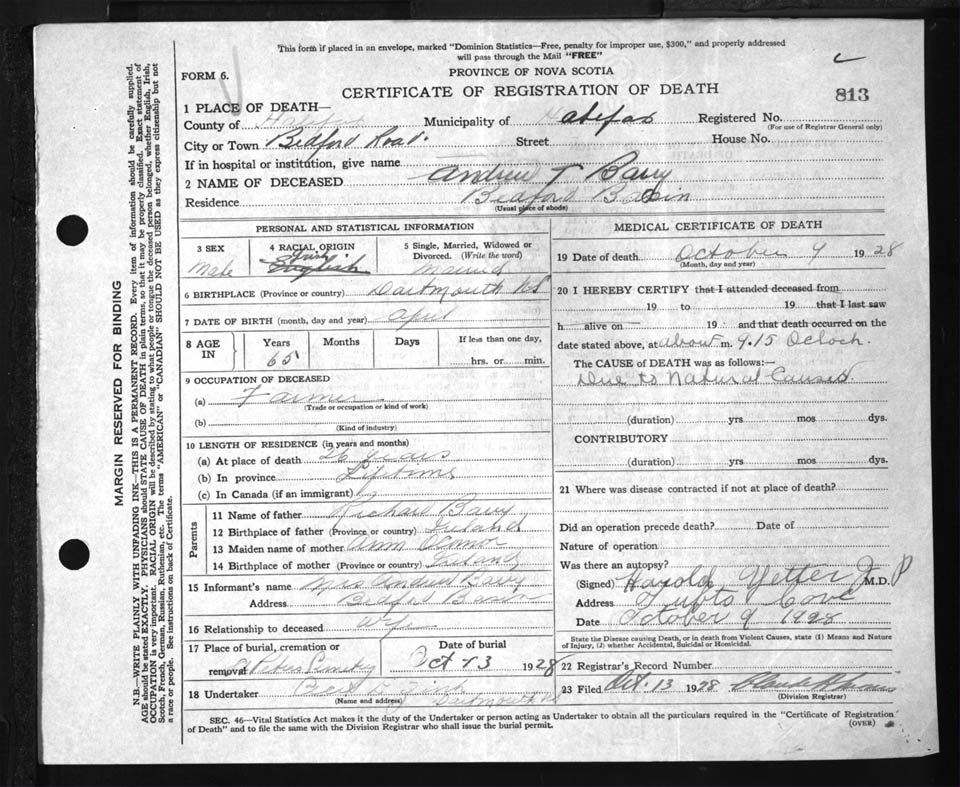 This form if placed in an envelope, marked "Dominion Statistics—Free, penalty for improper use, $300," and properly addressed
will pass through the Mail "FREE"
FORM 6.
PROVINCE OF NOVA SCOTIA
CERTIFICATE OF REGISTRATION OF DEATH
813
1 PLACE OF DEATH—
County of Halifax Municipality of Halifax Registered No.
(For use of Registrar General only)
City or Town Bedford Road. Street House No.
If in hospital or institution, give name
2 NAME OF DECEASED Andrew T Barry
Residence Bedford Basin
(Usual place of abode)
PERSONAL AND STATISTICAL INFORMATION
3 SEX 4 RACIAL ORIGIN 5 Single, Married, Widowed or
Divorced. (Write the word)
Male Irish English Married
6 BIRTHPLACE (Province or country) Dartmouth NS
7 DATE OF BIRTH (month, day and year) April
8 AGE IN Years Months Days If less than one day,
65 hrs. or min.
9 OCCUPATION OF DECEASED
(a) Farmer
(Trade or occupation or kind of work)
(b)
(Kind of industry)
10 LENGTH OF RESIDENCE (in years and months)
(a) At place of death 26 years
(b) In province Lifetime
(c) In Canada (if an immigrant)
Parents
11 Name of father Richard Barry
12 Birthplace of father (Province or country) Ireland
13 Maiden name of mother Ann
14 Birthplace of mother (Province or country) Ireland
15 Informant's name Mrs Andrew Barry
Address Bedford Basin
16 Relationship to deceased Wife
17 Place of burial, cremation or Date of burial
removal Cemetery Oct 13 1928
18 Undertaker
(Name and address) Dartmouth
MEDICAL CERTIFICATE OF DEATH
19 Date of death October 9 1928
(Month, day and year)
20 I HEREBY CERTIFY that I attended deceased from
19 to 19 that I last saw
h alive on 19 and that death occurred on the
date stated above, at about m. 9.15 Oclock.
The CAUSE of DEATH was as follows:—
Due to Natural Causes
(duration) yrs mos dys.
CONTRIBUTORY
(duration) yrs mos dys.
21 Where was disease contracted if not at place of death?
Did an operation precede death? Date of
Nature of operation
Was there an autopsy?
(Signed) Harold Yetter M.D.
Address Tufts Cove
Date October 9 1928
State the Disease causing Death, or in death from Violent Causes, state (1) Means and Nature
of Injury, (2) whether Accidental, Suicidal or Homicidal.
22 Registrar's Record Number
23 Filed Oct. 13 1928
(Division Registrar)
SEC. 46—Vital Statistics Act makes it the duty of the Undertaker or person acting as Undertaker to obtain all the particulars required in the "Certificate of Registration
of Death" and to file the same with the Division Registrar who shall issue the burial permit.
(OVER)
MARGIN RESERVED FOR BINDING
N.B.—WRITE PLAINLY WITH UNFADING INK—THIS IS A PERMANENT RECORD. Every item of information should be carefully supplied.
AGE should be stated EXACTLY. PHYSICIANS should STATE CAUSE OF DEATH in plain terms, so that it may be properly classified. Exact statement of
OCCUPATION is very important. RACIAL ORIGIN will be described by stating to what people or tongue the deceased person belonged, whether English, Irish,
Scotch, French, German, Russian, Ruthenian, etc. The terms "AMERICAN" or "CANADIAN" SHOULD NOT BE USED as they express citizenship but not
a race or people. See instructions on back of Certificate.